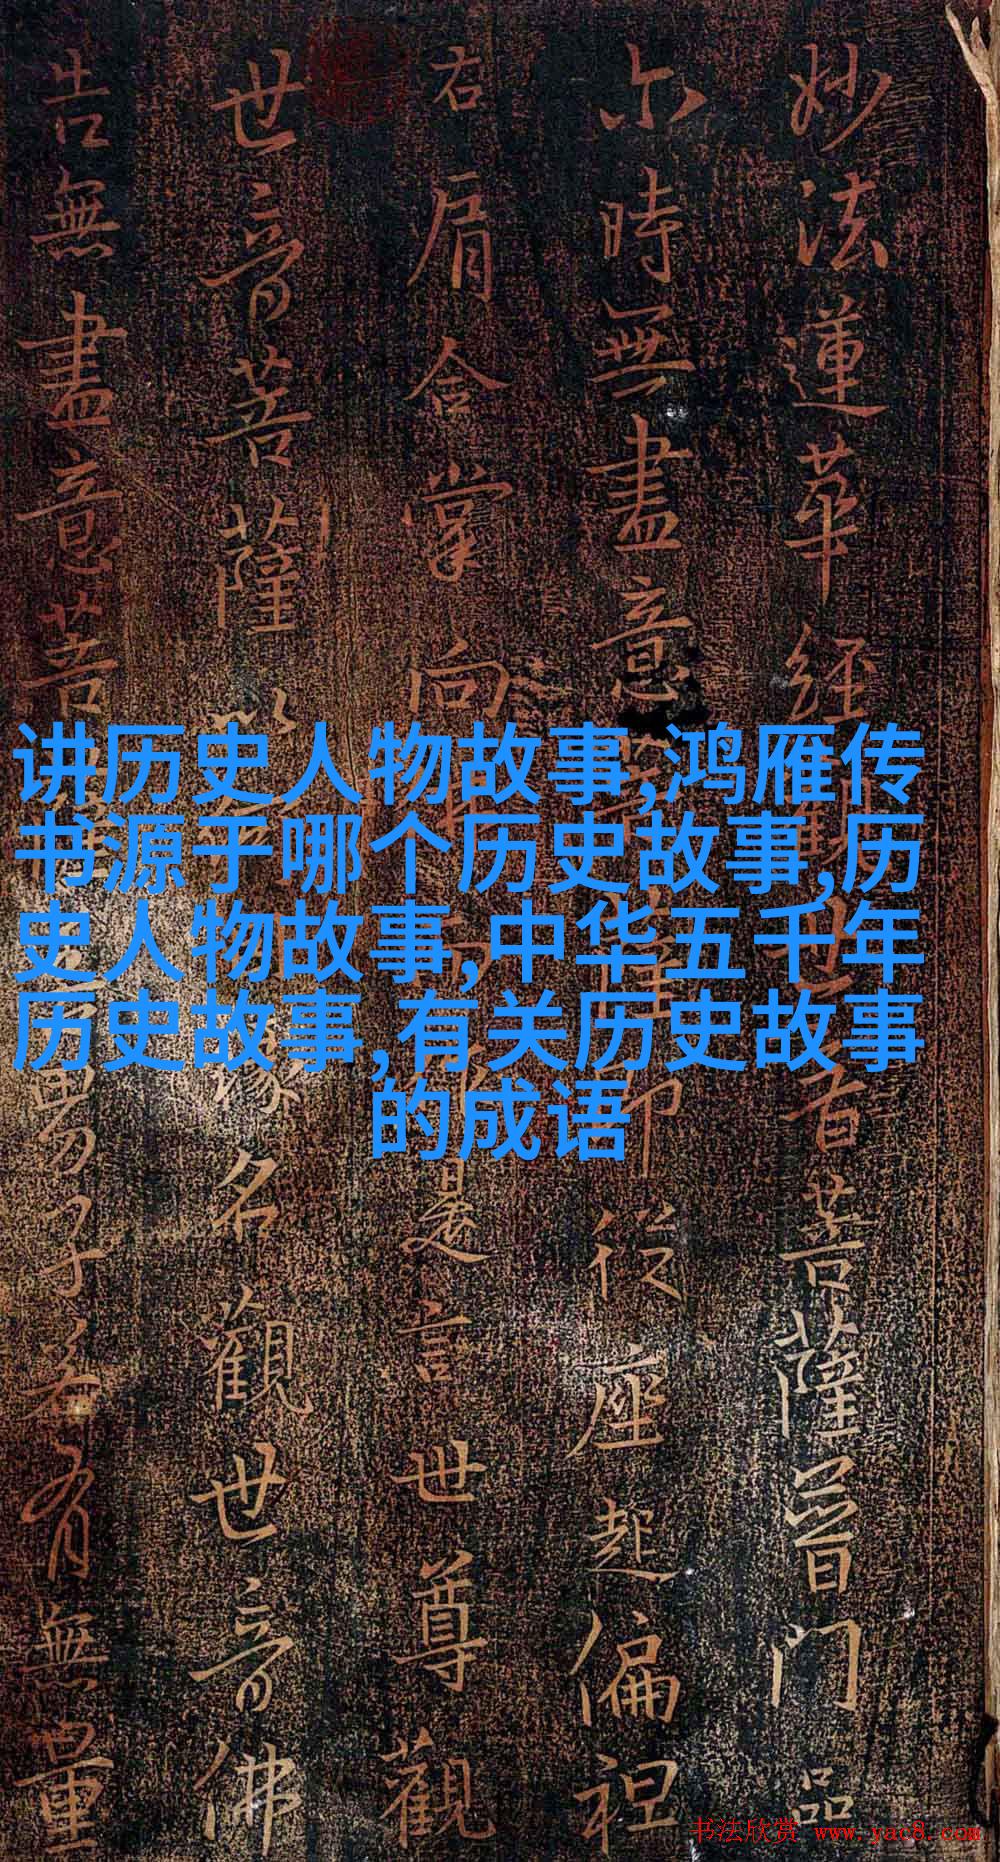 妙法蓮華經觀世音菩薩普門品
尒時無盡意菩薩即從座起偏袒
右肩合掌向佛而作是言世尊觀
世音菩薩以何因緣名觀世音佛
告無盡意菩薩善男子若有無量
讲历史人物故事,鸿雁传
书源于哪个历史故事,历
史人物故事,中华五千年
历史故事,有关历史故事
的成语
书法欣赏 www.yac8.com